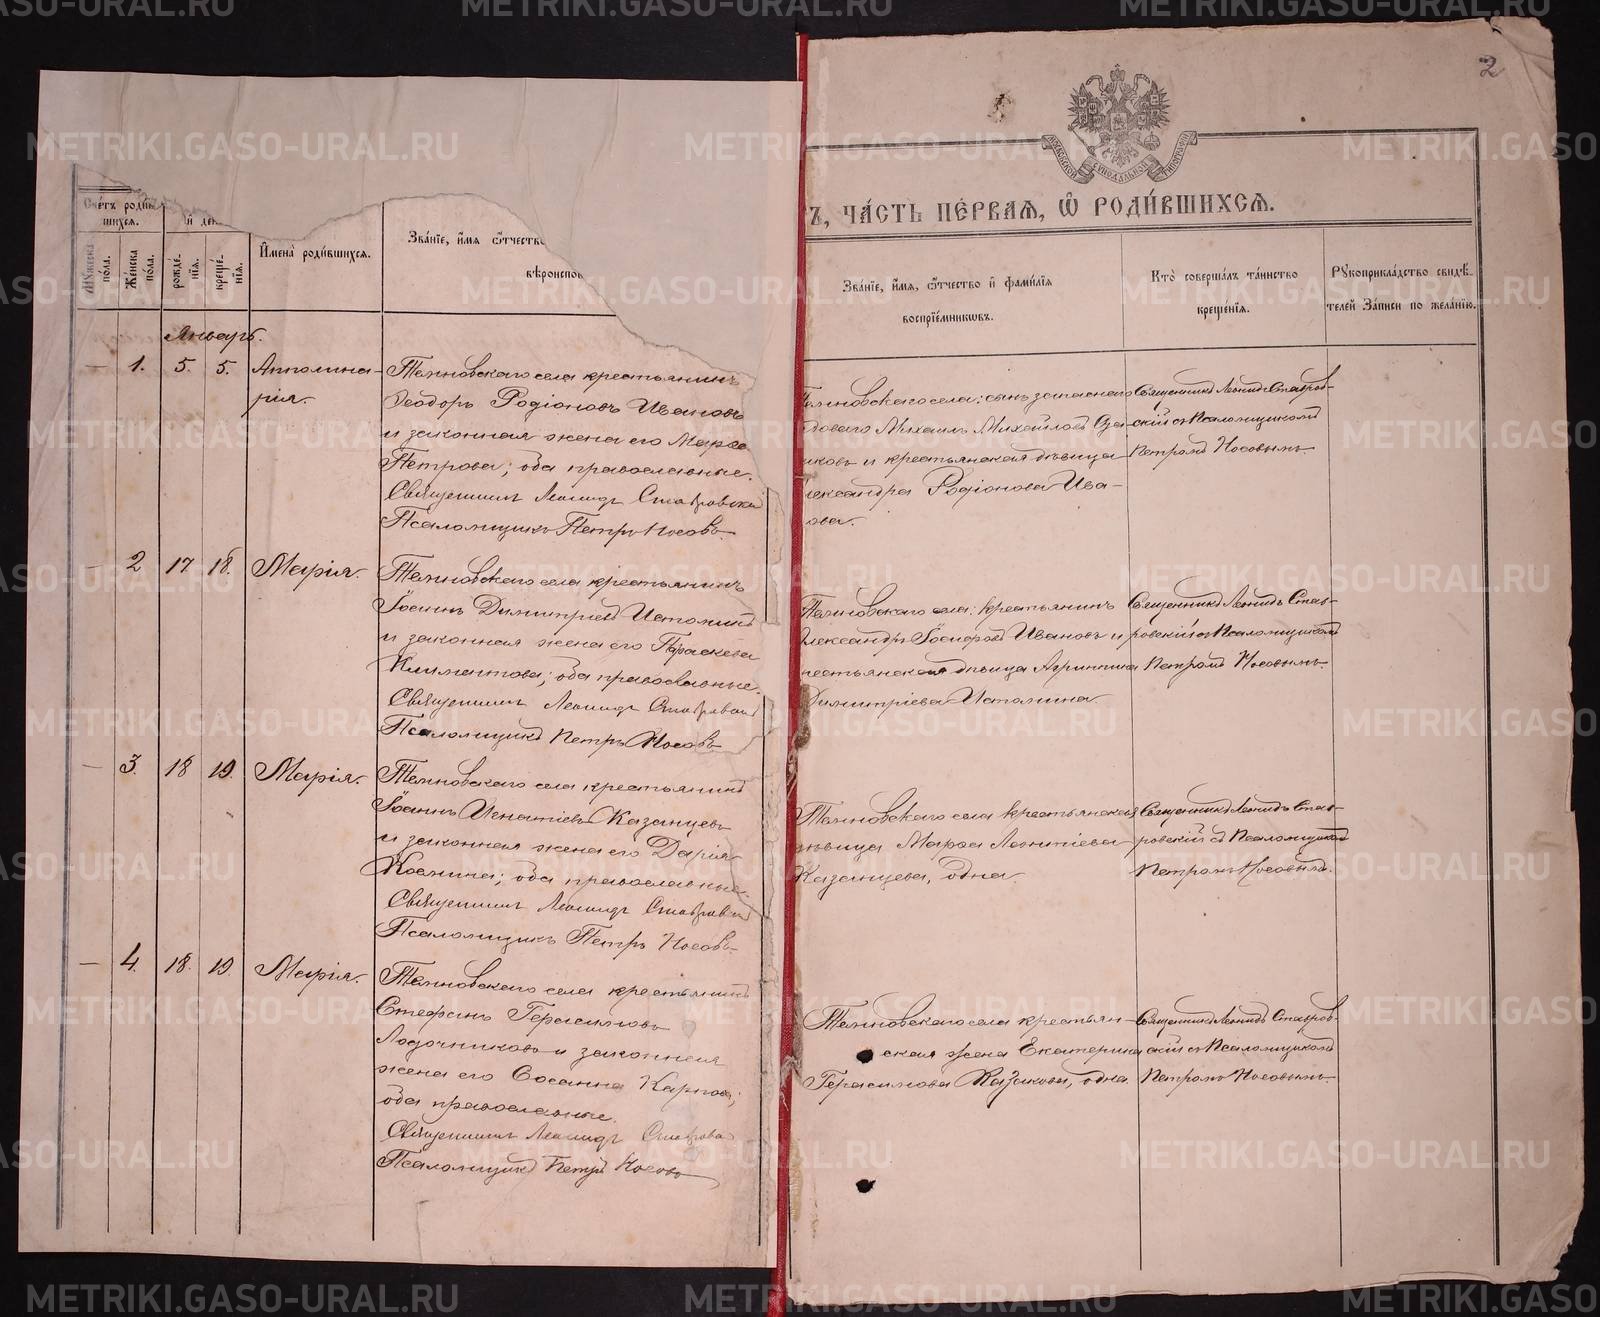 2
МОСКОВСКОЙ СѴНОДАЛЬНОЙ ТИПОГРАФІИ
Ъ, ЧА́СТЬ ПЕ́РВАѦ, Ѡ҆ РОДИ́ВШИХСѦ.
Сче́тъ роди́вшихсѧ.
И҆ ден
Мꙋ́жеска по́ла.
Же́нска по́ла.
рожде́нїѧ.
креще́нїѧ.
И҆мена̀ роди́вшихсѧ.
Зва́нїе, и҆́мѧ ѻ҆́тчество
вѣроиспов
Зва́нїе, и҆́мѧ, ѻ҆́тчество и҆ фами́лїѧ
воспрїе́мниковъ.
Кто̀ соверша́лъ та́инство
креще́нїѧ.
Рꙋкоприкла́дство свидѣ́-
телей За́писи по жела́нїю.
Январь.
— 1. 5. 5. Апполина-
рія.
Темновскаго села крестьянинъ
Ѳеодоръ Родіоновъ Ивановъ
и законная жена его Марѳа
Петрова; оба православные.
Священникъ Леонидъ Ставровскій
Псаломщикъ Петръ Носовъ
села: сынъ запаснаго
Михаилъ Михайловъ
и крестьянская дѣвица
Родіонова Ива-
нова.
Священникъ Леонидъ Ставров-
скій съ Псаломщикомъ
Петромъ Носовымъ.
— 2 17 18. Марія.
Темновскаго села крестьянинъ
Іоаннъ Димитріевъ Истоминъ
и законная жена его Параскева
Климентова; оба православные.
Священникъ Леонидъ Ставровскій
Псаломщикъ Петръ Носовъ
Темновскаго села: крестьянинъ
Александръ Іосифовъ Ивановъ и
крестьянская дѣвица Агриппина
Димитріева Истомина
Священникъ Леонидъ Став-
ровскій съ Псаломщикомъ
Петромъ Носовымъ.
— 3. 18 19. Марія.
Темновскаго села крестьянинъ
Іоаннъ Игнатіевъ Казанцевъ
и законная жена его Дарія
Космина; оба православные
Священникъ Леонидъ Ставровскій
Псаломщикъ Петръ Носовъ
Темновскаго села крестьянская
дѣвица Марѳа Леонтіева
Казанцева, одна.
Священникъ Леонидъ Став-
ровскій съ Псаломщикомъ
Петромъ Носовымъ.
— 4. 18. 19. Марія.
Темновскаго села крестьянинъ
Стефанъ Герасимовъ
Лодочниковъ и законная
жена его Сосанна Карпова;
оба православные.
Священникъ Леонидъ Ставровскій
Псаломщикъ Петръ Носовъ
Темновскаго села крестьян-
ская жена Екатерина
Герасимова Казакова, одна.
Священникъ Леонидъ Ставров-
скій съ Псаломщикомъ
Петромъ Носовымъ.
METRIKI.GASO-URAL.RU